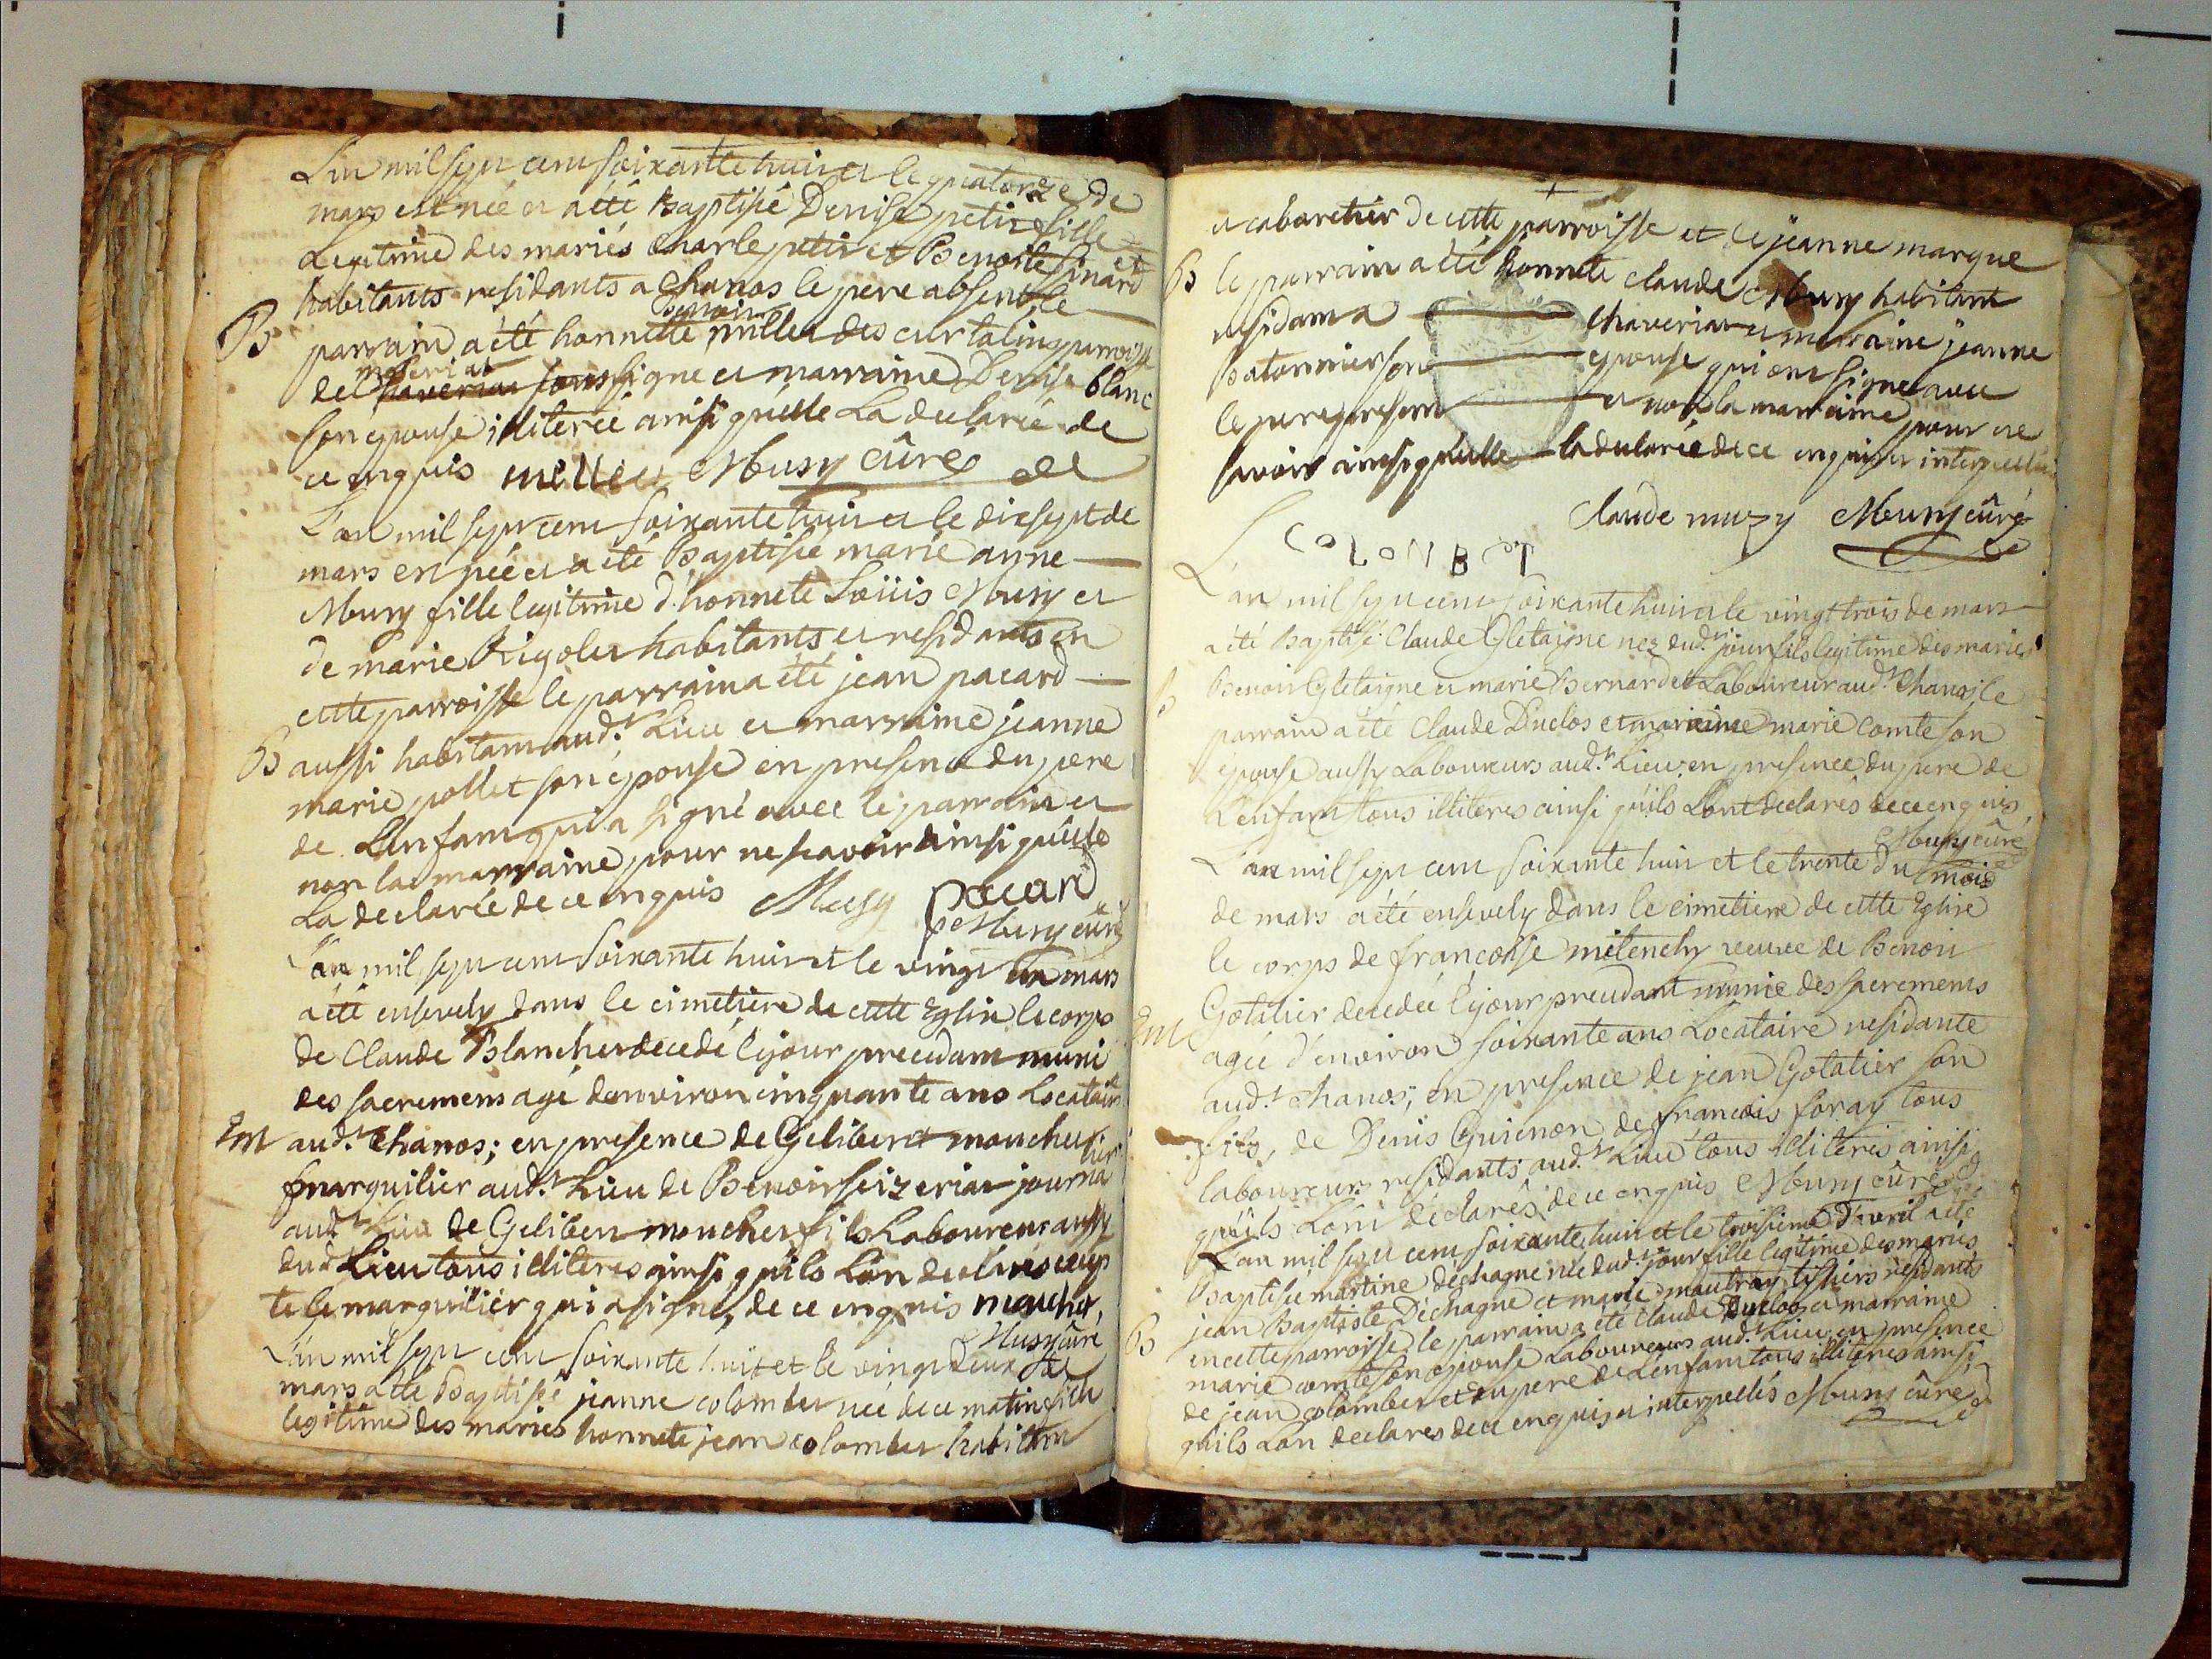 L'an mil sept cent soixante huit et le quatorze de
mars est née et a été Baptisée Denise petit fille
Legitime des mariés Charle petit et Benoite Pinard
habitants residants a Chanos le pere absent le
B parrain a été honnette Benoit millet des curtalins parroisse
de maseriat soussigne et marraine Denise blanc
son epouse illiterée ainsi quelle La declarée de
ce enquis millet Musy Curé
L'an mil sept cent soixante huit et le dixsept de
mars est née et a été Baptisée marie anne
Musy fille legitime d'honnete Loüis Musy et
de marie Rigolet habitants et residants en
cette parroisse le parrain a été jean pacard
B aussi habitant aud.t Lieu et marraine jeanne
marie pollet son épouse en presence du pere
de Lenfant qui a signé avec le parrain et
non la marraine pour ne scavoir ainsi quelle
La declarée de ce enquis Musy pacard
Musy curé
L'an mil sept cent soixante huit et le vingt un mars
a été ensevely dans le cimetiere de cette Eglise le corps
de Claude Blanchet decedé le jour precedant muni
des sacremens agé denviron cinquante ans Locataire
Em aud.t Chanos; en presence de Gelibert moucher
marguilier aud.t Lieu de Benoit seizeriat journalier
aud.t Lieu de Gelibert moucher fils Laboureur aussy
dud.t Lieu tous illiteres ainsi quils Lon declarés excep
te le marguilier qui a signé, de ce enquis moucher,
Musy curé
L'an mil sept cent soixante huit et le vingt deux de
mars a été Baptisée jeanne colombet née de ce matin fille
legitime des mariés honnete jean colombet habitant
et cabaretier de cette parroisse et de jeanne marque
B le parrain a été honnete claude Musy habitant
residant a chaveriat et marraine jeanne
Batonnier son epouse qui ont signe avec
le pere present et non la marraine pour ne
savoir ainsi quelle la declarée de ce enquis et interpellée
claude muzy Musy curé
COLONBET
L'an mil sept cent soixante huit et le vingt trois de mars
a été Baptisé Claude Gletaigne nez dud.t jour fils legitime des mariés
B Benoit Gletaigne et marie Bernardet Laboureur aud.t Chanos le
parrain a été Claude Duclos et marraine marie comte son
epouse aussy Laboureurs aud.t Lieu. en presence du pere de
L'enfant tous illiteres ainsi quils Lont declarés de ce enquis
Musy curé
L'an mil sept cent soixante huit et le trente du mois
de mars a été ensevely dans le cimetiere de cette Eglise
le corps de francoise metenchy veuve de Benoit
Em Gotalier decedée le jour precedant munie des sacremens
agée d'environ soixante ans Locataire residante
aud.t Chanos; en presence de jean Gotalier son
fils, de Denis Guienon de francois foray tous
laboureurs residants aud.t Lieu tous illiteres ainsi
quils Lont declarés de ce enquis Musy curé
L'an mil sept cent soixante huit et le troisieme d'avril a été
Baptisée martine déchagne née dud.t jour fille legitime des mariés
jean Baptiste Déchagne et marie mautray tissiers residants
B en cette parroisse le parrain a été claude Duclos et marraine
marie comte son epouse Laboureurs aud.t Lieu en presence
de jean colombet et du pere de Lenfant tous illiteres ainsi
quils Lon declarés de ce enquis et interpellés Musy curé